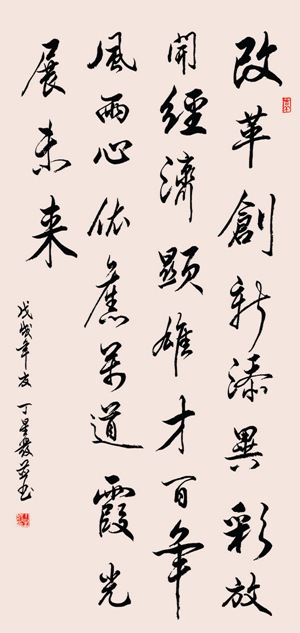 改革創新添異彩放
開經濟顯雄才百年
風雨心依舊萬道霞光
展未来
戊戌年友丁星發并书